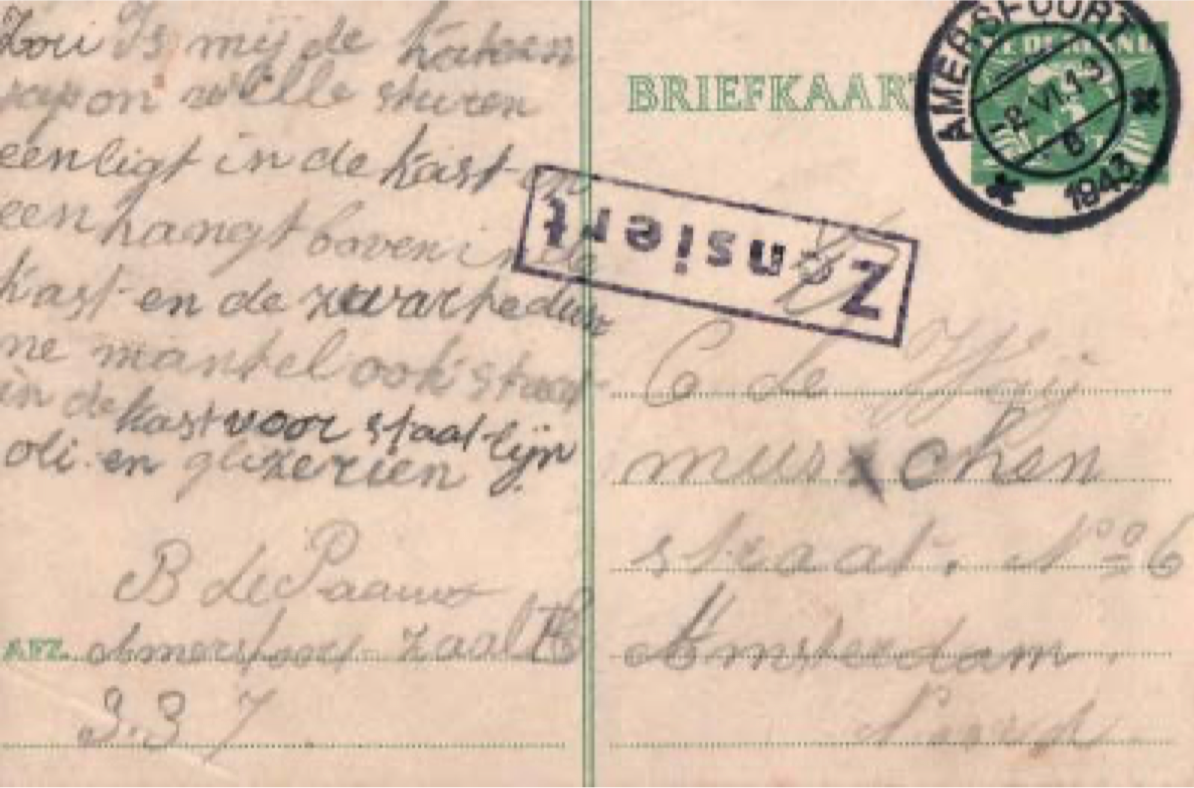 Zou Is mij de
japon wille sturen
een ligt in de kast en
een hangt boven in de
kast en de zwarte
mantel ook staat
in de kast voor staat lijn
oli en glizerien
B de Paauw
AFZ. Amersfoort zaal
3.3 7
BRIEFKAART
NEDERLAND
AMERSFOORT
-2.VI.13
8
1943
Zensiert
C de
musschen
straat. No 6
Amsterdam.
Noord